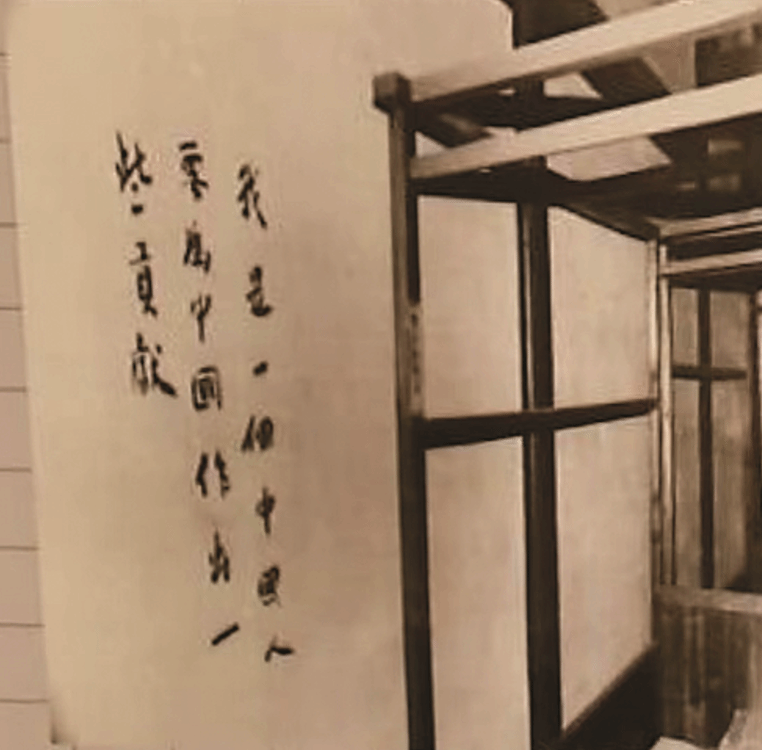 我是一個中國人
要為中國作出一
些貢献